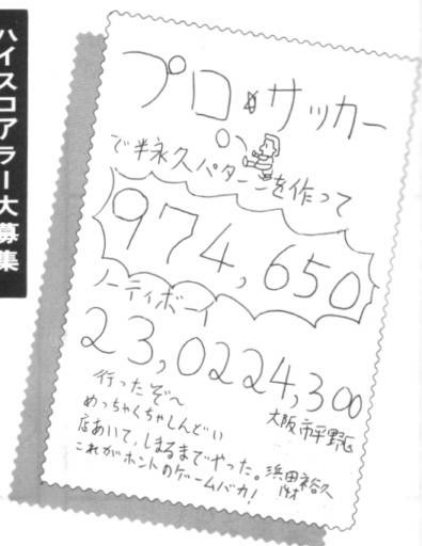 ハイスコアラー大募集
プロ・サッカー
で半永久パターンを作って
974,650
ノーティボーイ
23,0224,300
行ったぞ〜
めっちゃくちゃしんどい
店あいて、しまるまでやった。
これがホントのゲームバカ!
大阪市平野区
浜田裕久